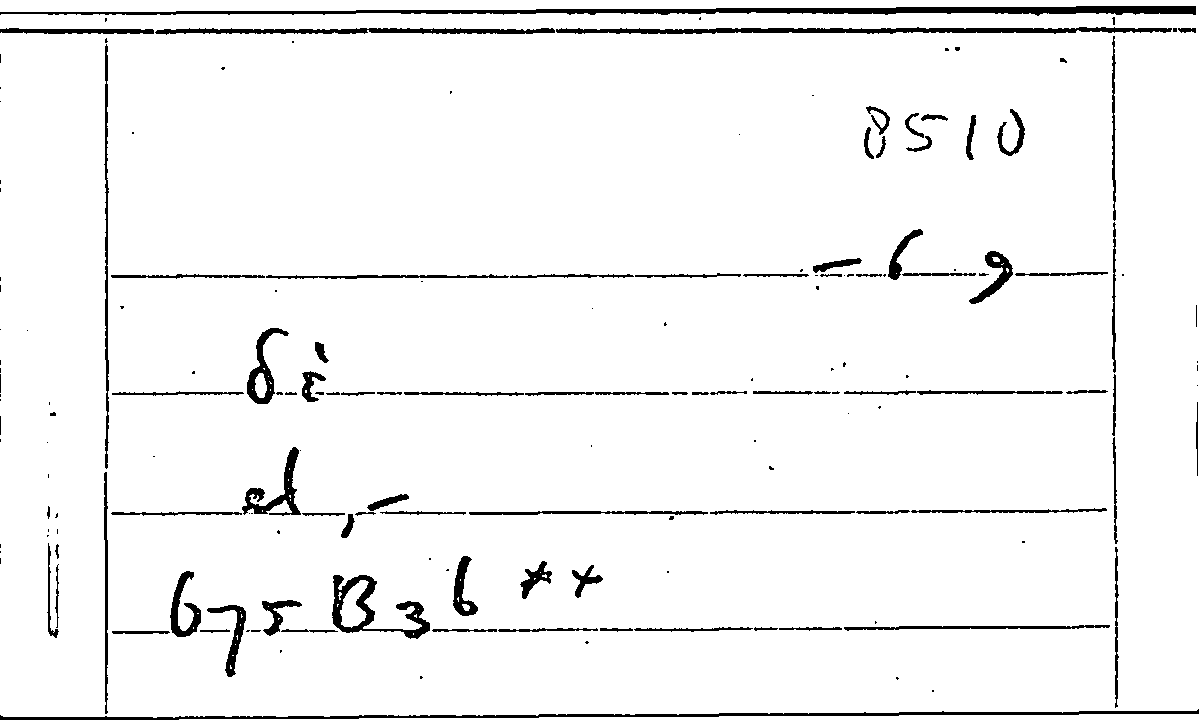 8510
- 6 9
δὲ
et, -
675 B 36 **